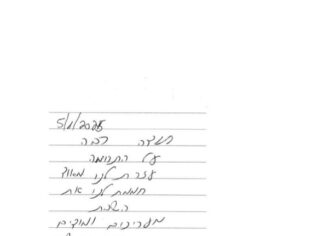 5/1/2025
תודה רבה
על התרומה
עזרת לנו מאוד
חממת לנו את
השבת
מעריכים ומודים